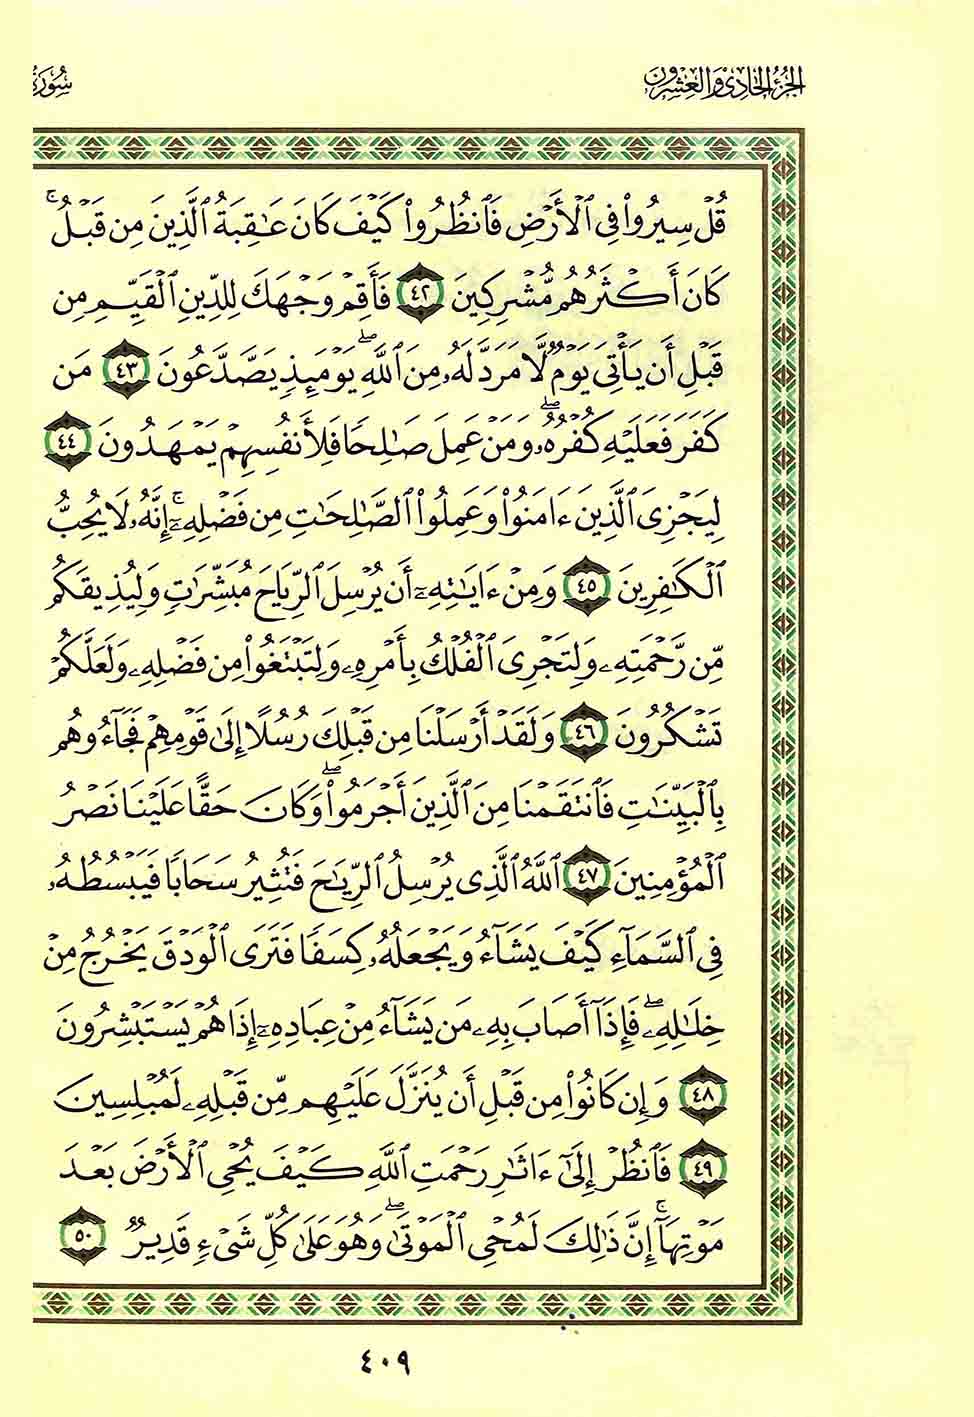 الجزء الحادي والعشرون
سورة
قُلْ سِيرُوا۟ فِى ٱلْأَرْضِ فَٱنظُرُوا۟ كَيْفَ كَانَ عَـٰقِبَةُ ٱلَّذِينَ مِن قَبْلُ ۚ
كَانَ أَكْثَرُهُم مُّشْرِكِينَ ٤٢ فَأَقِمْ وَجْهَكَ لِلدِّينِ ٱلْقَيِّمِ مِن
قَبْلِ أَن يَأْتِىَ يَوْمٌ لَّا مَرَدَّ لَهُۥ مِنَ ٱللَّهِ ۖ يَوْمَئِذٍ يَصَّدَّعُونَ ٤٣ مَن
كَفَرَ فَعَلَيْهِ كُفْرُهُۥ ۖ وَمَنْ عَمِلَ صَـٰلِحًا فَلِأَنفُسِهِمْ يَمْهَدُونَ ٤٤
لِيَجْزِىَ ٱلَّذِينَ ءَامَنُوا۟ وَعَمِلُوا۟ ٱلصَّـٰلِحَـٰتِ مِن فَضْلِهِۦٓ ۚ إِنَّهُۥ لَا يُحِبُّ
ٱلْكَـٰفِرِينَ ٤٥ وَمِنْ ءَايَـٰتِهِۦٓ أَن يُرْسِلَ ٱلرِّيَاحَ مُبَشِّرَٰتٍ وَلِيُذِيقَكُم
مِّن رَّحْمَتِهِۦ وَلِتَجْرِىَ ٱلْفُلْكُ بِأَمْرِهِۦ وَلِتَبْتَغُوا۟ مِن فَضْلِهِۦ وَلَعَلَّكُمْ
تَشْكُرُونَ ٤٦ وَلَقَدْ أَرْسَلْنَا مِن قَبْلِكَ رُسُلًا إِلَىٰ قَوْمِهِمْ فَجَآءُوهُم
بِٱلْبَيِّنَـٰتِ فَٱنتَقَمْنَا مِنَ ٱلَّذِينَ أَجْرَمُوا۟ ۖ وَكَانَ حَقًّا عَلَيْنَا نَصْرُ
ٱلْمُؤْمِنِينَ ٤٧ ٱللَّهُ ٱلَّذِى يُرْسِلُ ٱلرِّيَـٰحَ فَتُثِيرُ سَحَابًا فَيَبْسُطُهُۥ
فِى ٱلسَّمَآءِ كَيْفَ يَشَآءُ وَيَجْعَلُهُۥ كِسَفًا فَتَرَى ٱلْوَدْقَ يَخْرُجُ مِنْ
خِلَـٰلِهِۦ ۖ فَإِذَآ أَصَابَ بِهِۦ مَن يَشَآءُ مِنْ عِبَادِهِۦٓ إِذَا هُمْ يَسْتَبْشِرُونَ
٤٨ وَإِن كَانُوا۟ مِن قَبْلِ أَن يُنَزَّلَ عَلَيْهِم مِّن قَبْلِهِۦ لَمُبْلِسِينَ
٤٩ فَٱنظُرْ إِلَىٰٓ ءَاثَـٰرِ رَحْمَتِ ٱللَّهِ كَيْفَ يُحْىِ ٱلْأَرْضَ بَعْدَ
مَوْتِهَآ ۚ إِنَّ ذَٰلِكَ لَمُحْىِ ٱلْمَوْتَىٰ ۖ وَهُوَ عَلَىٰ كُلِّ شَىْءٍ قَدِيرٌ ٥٠
٤٠٩